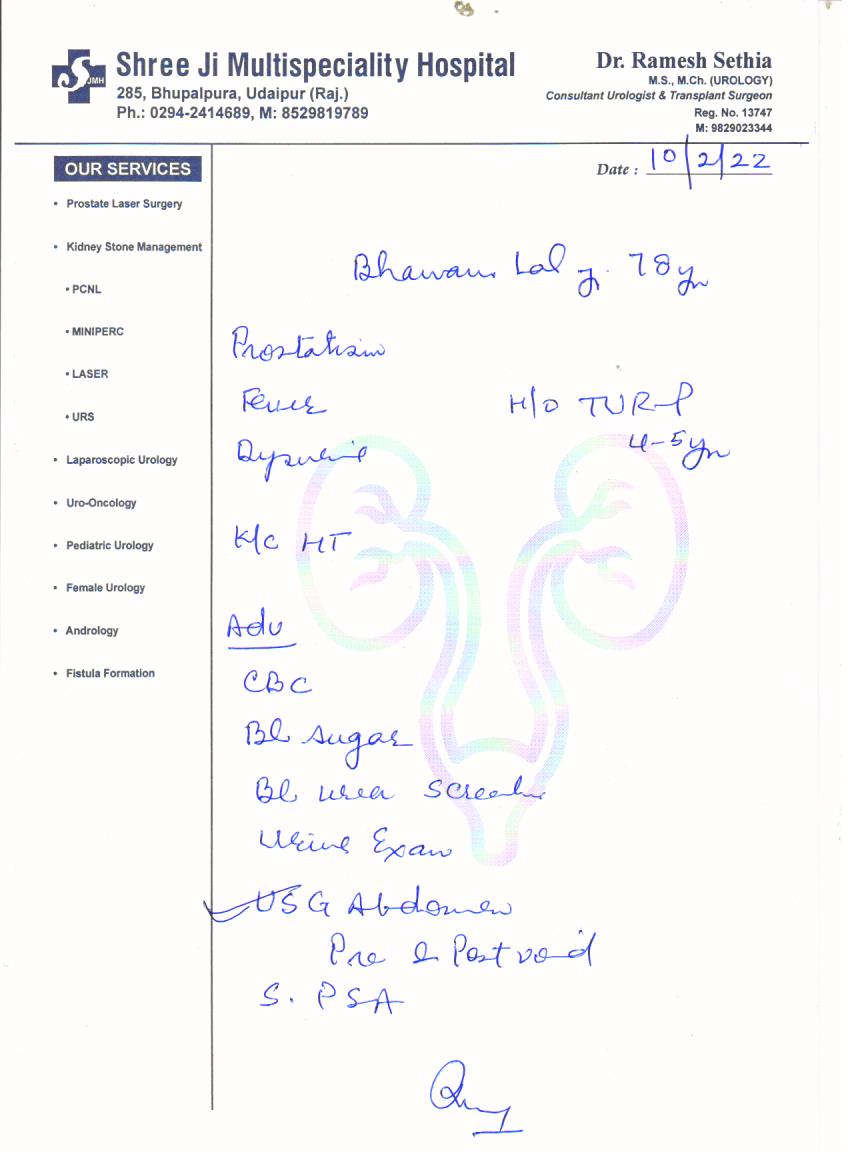 Shree Ji Multispeciality Hospital
285, Bhupalpura, Udaipur (Raj.)
Ph.: 0294-2414689, M: 8529819789
SJMH
Dr. Ramesh Sethia
M.S., M.Ch. (UROLOGY)
Consultant Urologist & Transplant Surgeon
Reg. No. 13747
M: 9829023344
Date : 10/2/22
OUR SERVICES
• Prostate Laser Surgery
• Kidney Stone Management
• PCNL
• MINIPERC
• LASER
• URS
• Laparoscopic Urology
• Uro-Oncology
• Pediatric Urology
• Female Urology
• Andrology
• Fistula Formation
Bhawani Lal Jj. 78 yr
Prostatism
Fever
H/O TUR-P
4-5 yr
Dysuria
K/c HT
Adv
CBC
Bl sugar
Bl urea
Urine Exam
USG Abdomen
Pre & Post void
S. PSA